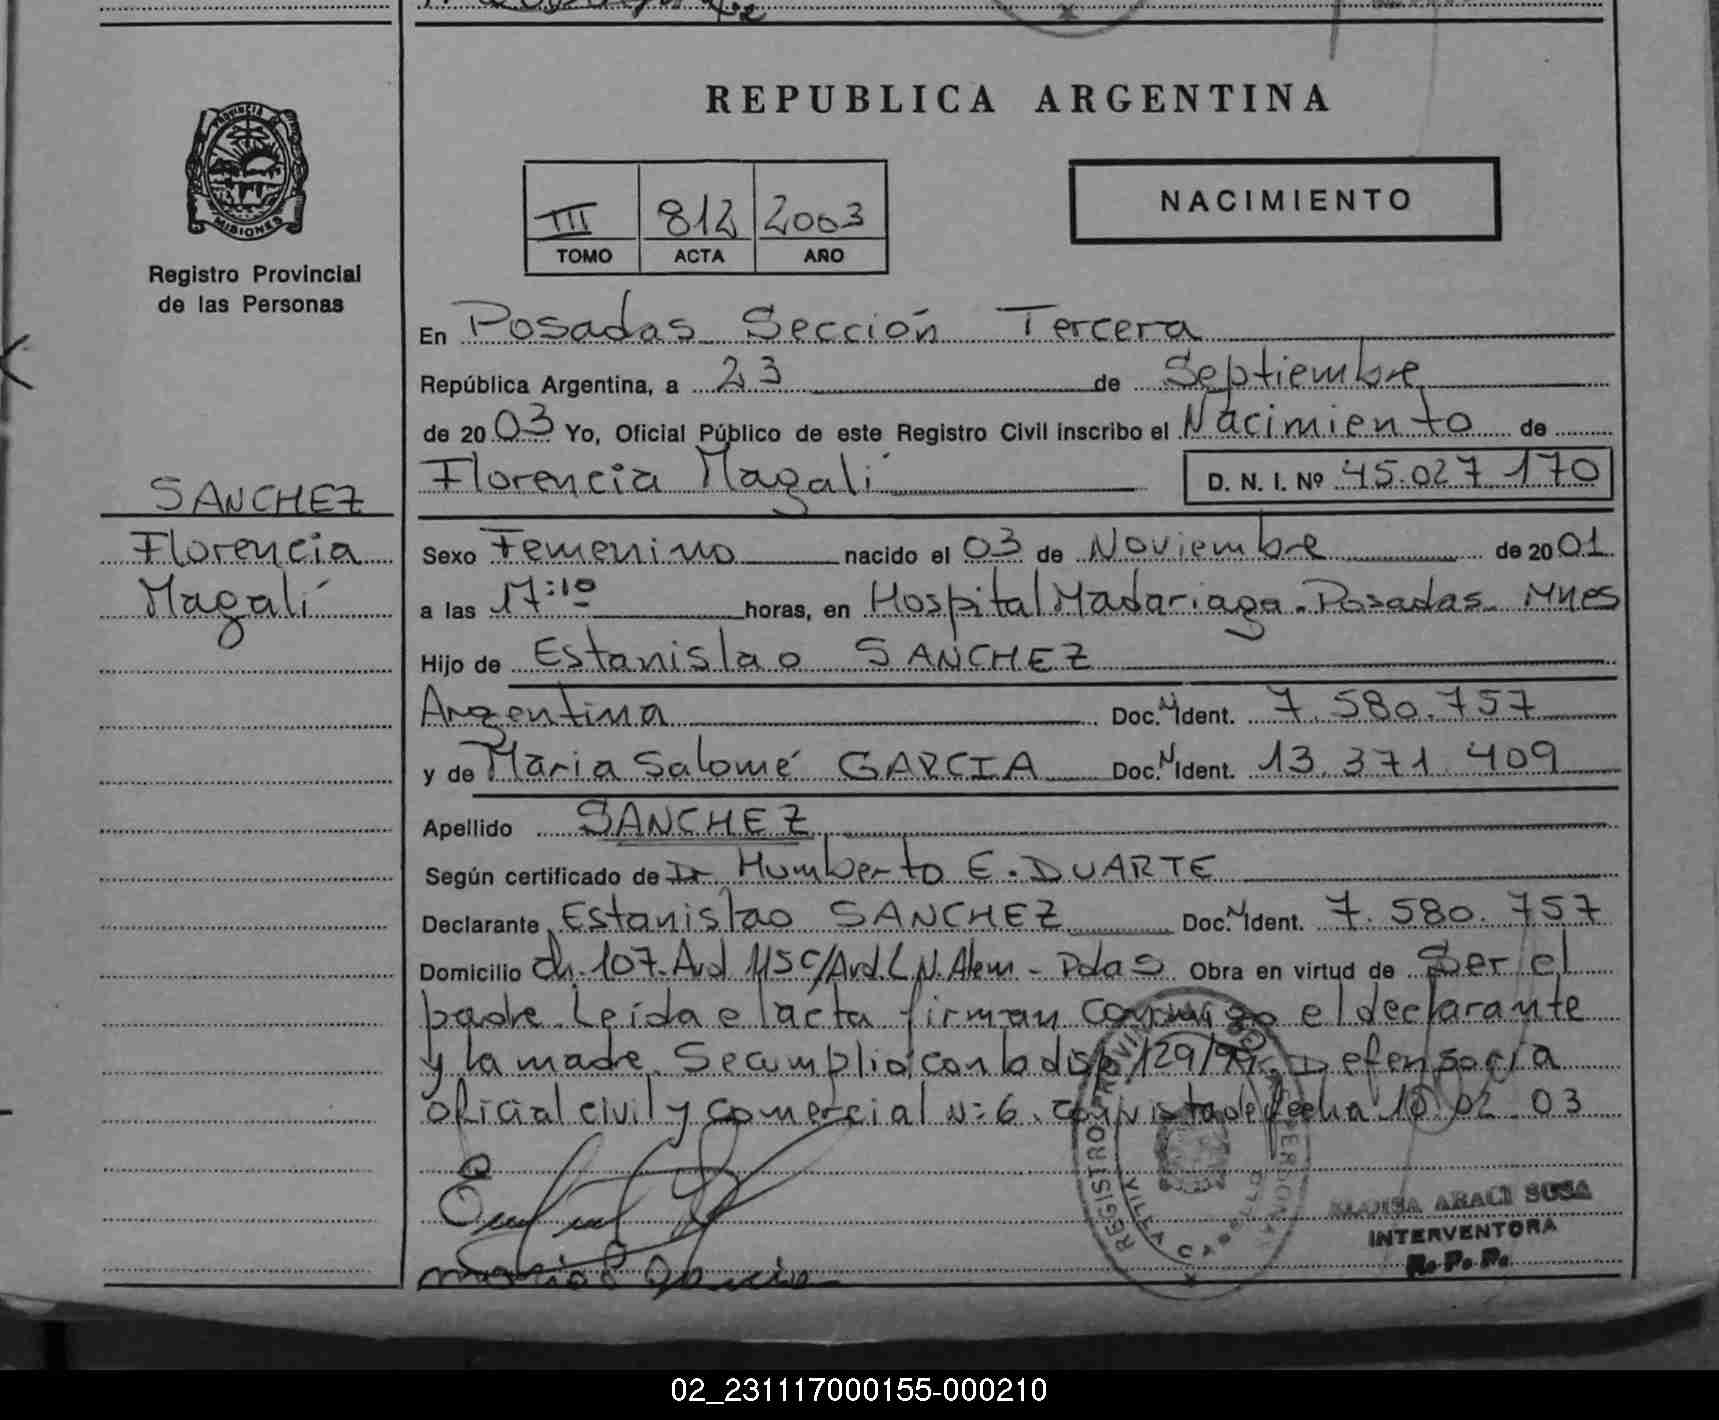 REPUBLICA ARGENTINA
PROVINCIA DE
MISIONES
Registro Provincial
de las Personas
III 812 2003
TOMO ACTA AÑO
NACIMIENTO
En Posadas Sección Tercera
República Argentina, a 23 de Septiembre
de 20 03 Yo, Oficial Público de este Registro Civil inscribo el Nacimiento de
Florencia Magalí D. N. I. Nº 45.027 170
SANCHEZ
Florencia
Magalí
Sexo Femenino nacido el 03 de Noviembre de 20 01
a las 17:10 horas, en Hospital Madariaga. Posadas. Mnes
Hijo de Estanislao SANCHEZ
Argentina Doc. N Ident. 7.580.757
y de Maria Salomé GARCIA Doc. N Ident. 13.371.409
Apellido SANCHEZ
Según certificado de Dr Humberto E. DUARTE
Declarante Estanislao SANCHEZ Doc. N Ident. 7.580.757
Domicilio Ch. 107. Avd 115 c/Avd. L.N. Alem - Pdas Obra en virtud de Ser el
padre. Leída el acta firman conmigo el declarante
y la madre. Se cumplió con la disp 129/99. Defensoria
oficial civil y comercial Nº 6. con vista de fecha 02.03
REGISTRO PROVINCIAL
VILLA CABELLO
ELOISA ARACI SUSA
INTERVENTORA
R. P. P.
02_231117000155-000210